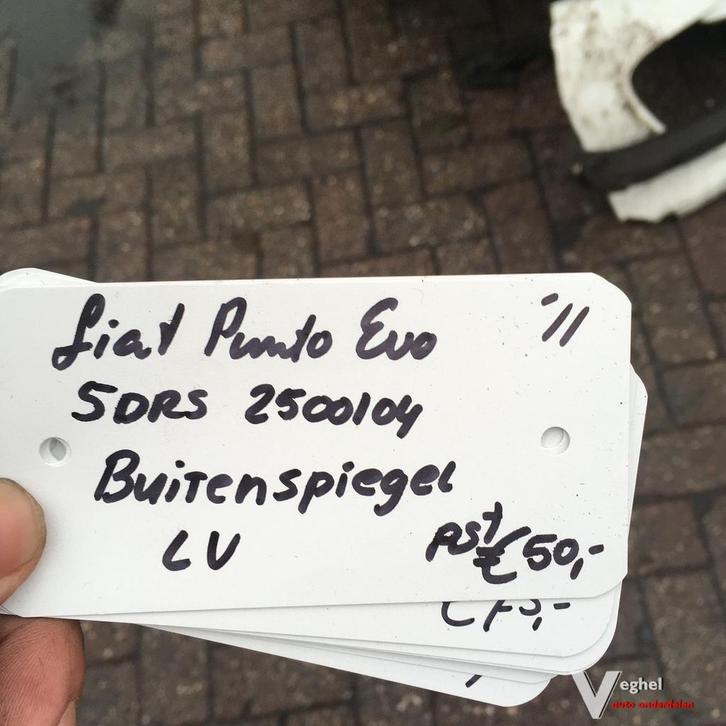 Fiat Punto Evo '11
5DRS 2500104
Buitenspiegel
LV pst € 50,-
€ 75,-
Veghel
auto onderdelen